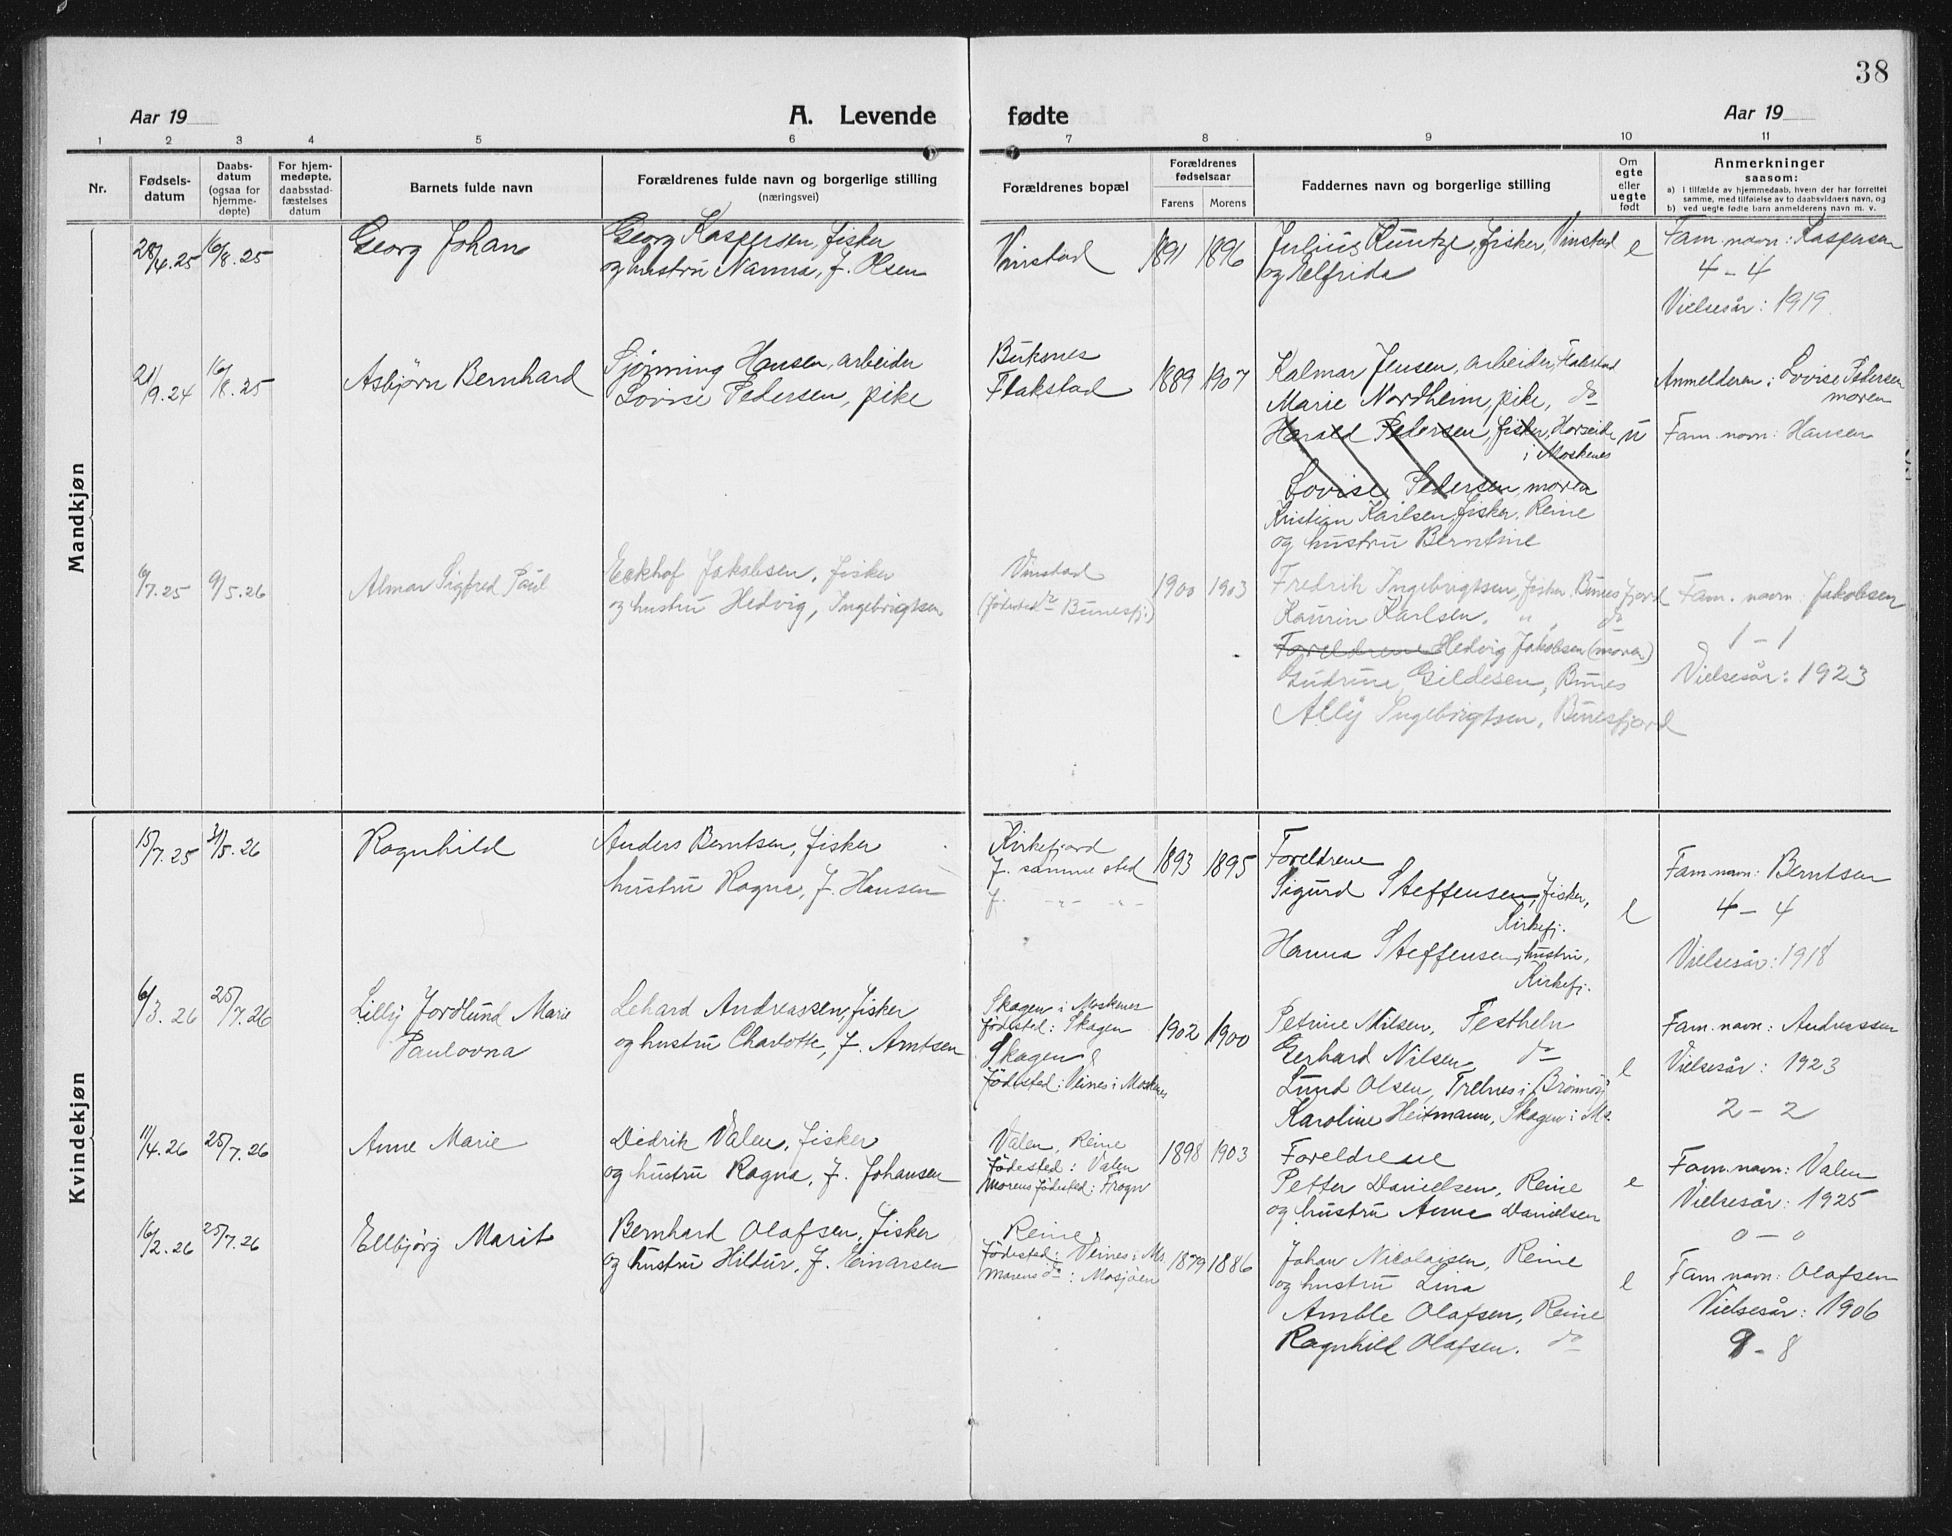 38
Aar 19
A. Levende fødte
Aar 19
1 2 3 4 5 6 7 8 9 10 11
Nr.
Fødsels-
datum
Daabs-
datum
(ogsaa for
hjemme-
døpte)
For hjem-
medøpte,
daabsstad-
fæstelses
datum
Barnets fulde navn
Forældrenes fulde navn og borgerlige stilling
(næringsvei)
Forældrenes bopæl
Forældrenes
fødselsaar
Farens Morens
Faddernes navn og borgerlige stilling
Om
egte
eller
uegte
født
Anmerkninger
saasom:
a) I tilfælde av hjemmedaab, hvem der har forrettet
samme, med tilføielse av to daabsvidners navn, og
b) ved uegte fødte barn anmelderens navn m. v.
Mandkjøn
28/4.25 16/8.25
Georg Johan
Georg Kaspersen, fisker
og hustru Nanna, f. Olsen
Vinstad
1891 1896
Julius Kuntze, fisker, Vinstad
og Elfrida
e
Fam. navn: Kaspersen
4 - 4
Vielsesår: 1919
21/9.24 16/8.25
Asbjørn Bernhard
Hansen, arbeider
Lovise Pedersen, pike
Buksnes
Flakstad
1889 1907
Kalmar Jensen, arbeider, Flakstad
Marie Nordheim, pike, do
Harald Pedersen, fisker,
i Moskenes
Lovise Pedersen, moren
Kristian Karlsen, fisker, Reine
og hustru Berntine
u
Anmelderen: Lovise Pedersen
moren
Fam. navn: Hansen
6/7.25 9/5.26
Almar Sigfred Paul
Eekhof Jakobsen, fisker
og hustru Hedvig, Ingebrigtsen
Vinstad
(fødested do Bunesfj.)
1900 1903
Fredrik Ingebrigtsen, fisker, Bunesfjord
Kaurin Karlsen, " , do
Foreldrene Hedvig Jakobsen (moren)
Gudrune Gildesen, Bunes
Ally Ingebrigtsen, Bunesfjord
Fam. navn: Jakobsen
1 - 1
Vielsesår: 1923
Kvindekjøn
15/7.25 24/5.26
Ragnhild
Anders Berntsen, fisker
hustru Ragna, f. Hansen
Kirkefjord
f. samme sted
f. -"- -"-
1893 1895
Foreldrene
Sigurd Steffensen, fisker,
Kirkefj.
Hanna Steffensen, hustru,
Kirkefj.
e
Fam. navn: Berntsen
4 - 4
Vielsesår: 1918
6/3.26 25/7.26
Lilly Jordlund Marie
Paulovna
Lehard Andreassen, fisker
og hustru Charlotte, f. Arntsen
Skagen i Moskenes
Fødested: Skagen
Skagen
Fødested: Veines i Moskenes
1902 1900
Petrine Nilsen, Festheln
Gerhard Nilsen do
Lund Olsen, Trelnes i Brønnøy
Karoline Heitmann, Skagen i Ms.
e
Fam. navn: Andreassen
Vielsesår: 1923
2 - 2
11/4.26 25/7.26
Anne Marie
Didrik Valen, fisker
og hustru Ragna, f. Johansen
Valen, Reine
Fødested: Valen
Morens fødested: Frogn
1898 1903
Foreldrene
Petter Danielsen, Reine
og hustru Anne Danielsen
e
Fam. navn: Valen
Vielsesår: 1925
0 - 0
16/2.26 25/7.26
Ellbjørg Marit
Bernhard Olafsen, fisker
og hustru Hildur, f. Einarsen
Reine
Fødested: Veines i Ms.
Morens do: Mosjøen
1879 1886
Johan Nicolaisen, Reine
og hustru Lina
Amble Olafsen, Reine
Ragnhild Olafsen. do
e
Fam. navn: Olafsen
Vielsesår: 1906
9 - 8